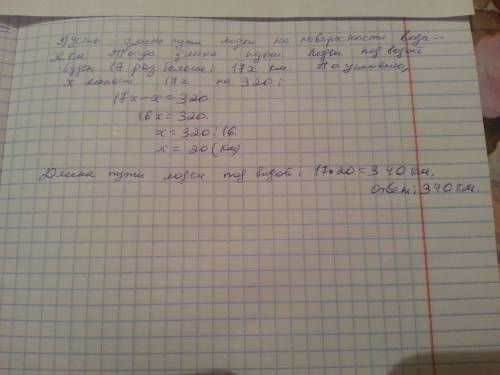 Пусть длина пути лодки на поверхности воды —
x км. Тогда длина пути лодки под водой
будет 17 раз больше: 17x км. По условию,
x меньше 17x на 320:
17x-x=320
16x=320.
x=320:16.
x=20(км)
Длина пути лодки под водой: 17•20=340 км.
ответ: 340 км.